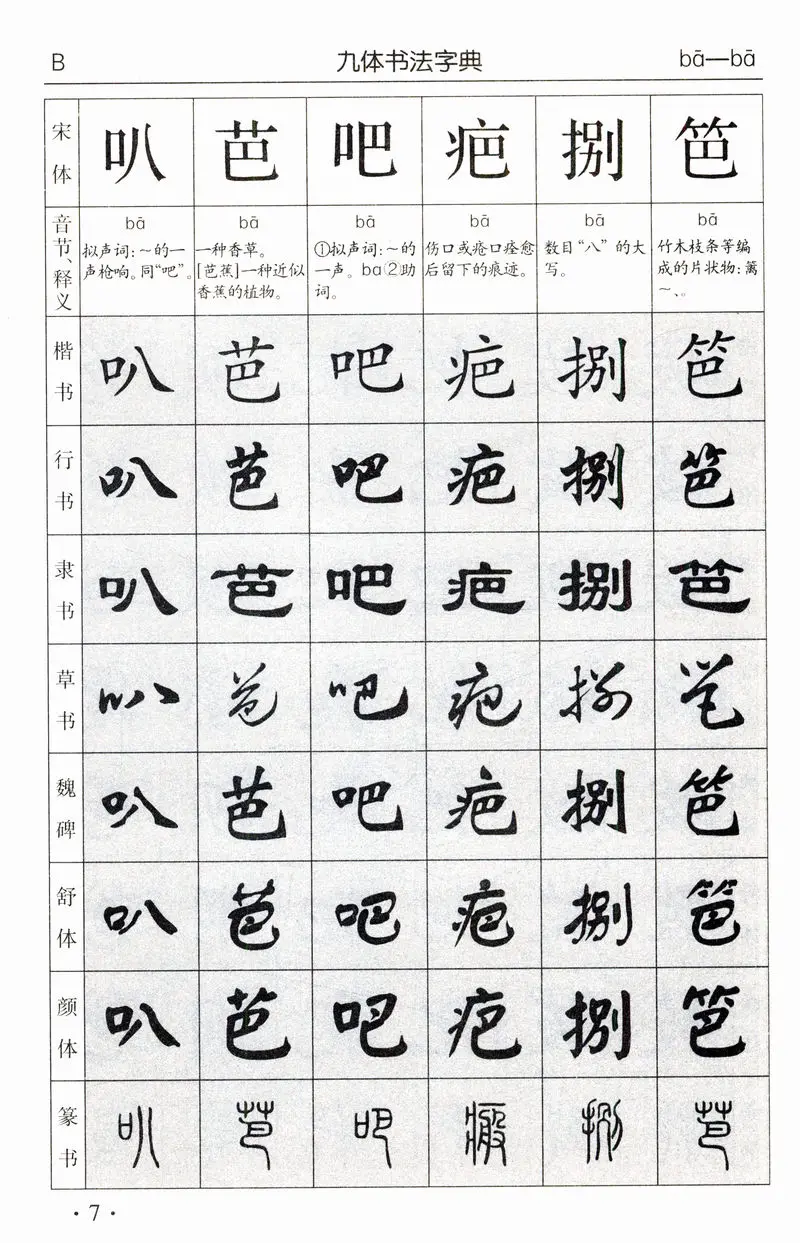 B 九体书法字典 bā—bā
宋体 叭 芭 吧 疤 捌 笆
音节、释义
bā
拟声词:～的一
声枪响。同“吧”。
bā
一种香草。
[芭蕉]一种近似
香蕉的植物。
bā
①拟声词:～的
一声。ba②助
词。
bā
伤口或疮口痊愈
后留下的痕迹。
bā
数目“八”的大
写。
bā
竹木枝条等编
成的片状物:篱
～、。
楷书 叭 芭 吧 疤 捌 笆
行书 叭 芭 吧 疤 捌 笆
隶书 叭 芭 吧 疤 捌 笆
草书 叭 芭 吧 疤 捌 笆
魏碑 叭 芭 吧 疤 捌 笆
舒体 叭 芭 吧 疤 捌 笆
颜体 叭 芭 吧 疤 捌 笆
篆书 叭 芭 吧 瘢 捌 芭
·7·